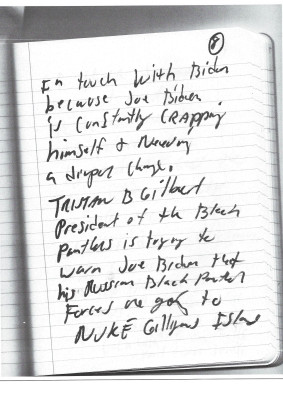 8
In touch with Biden
because Joe Biden
is Constantly CRAPPing
himself & Needing
a diaper change.
TRISTAN B Gilbert
President of the Black
Panthers is trying to
warn Joe Biden that
his Russian Black Panther
Forces are going to
NUKE Gilligans Island